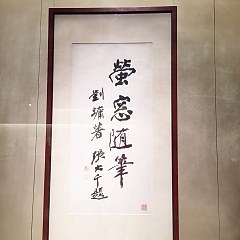 螢窗隨筆
劉墉著 張大千題